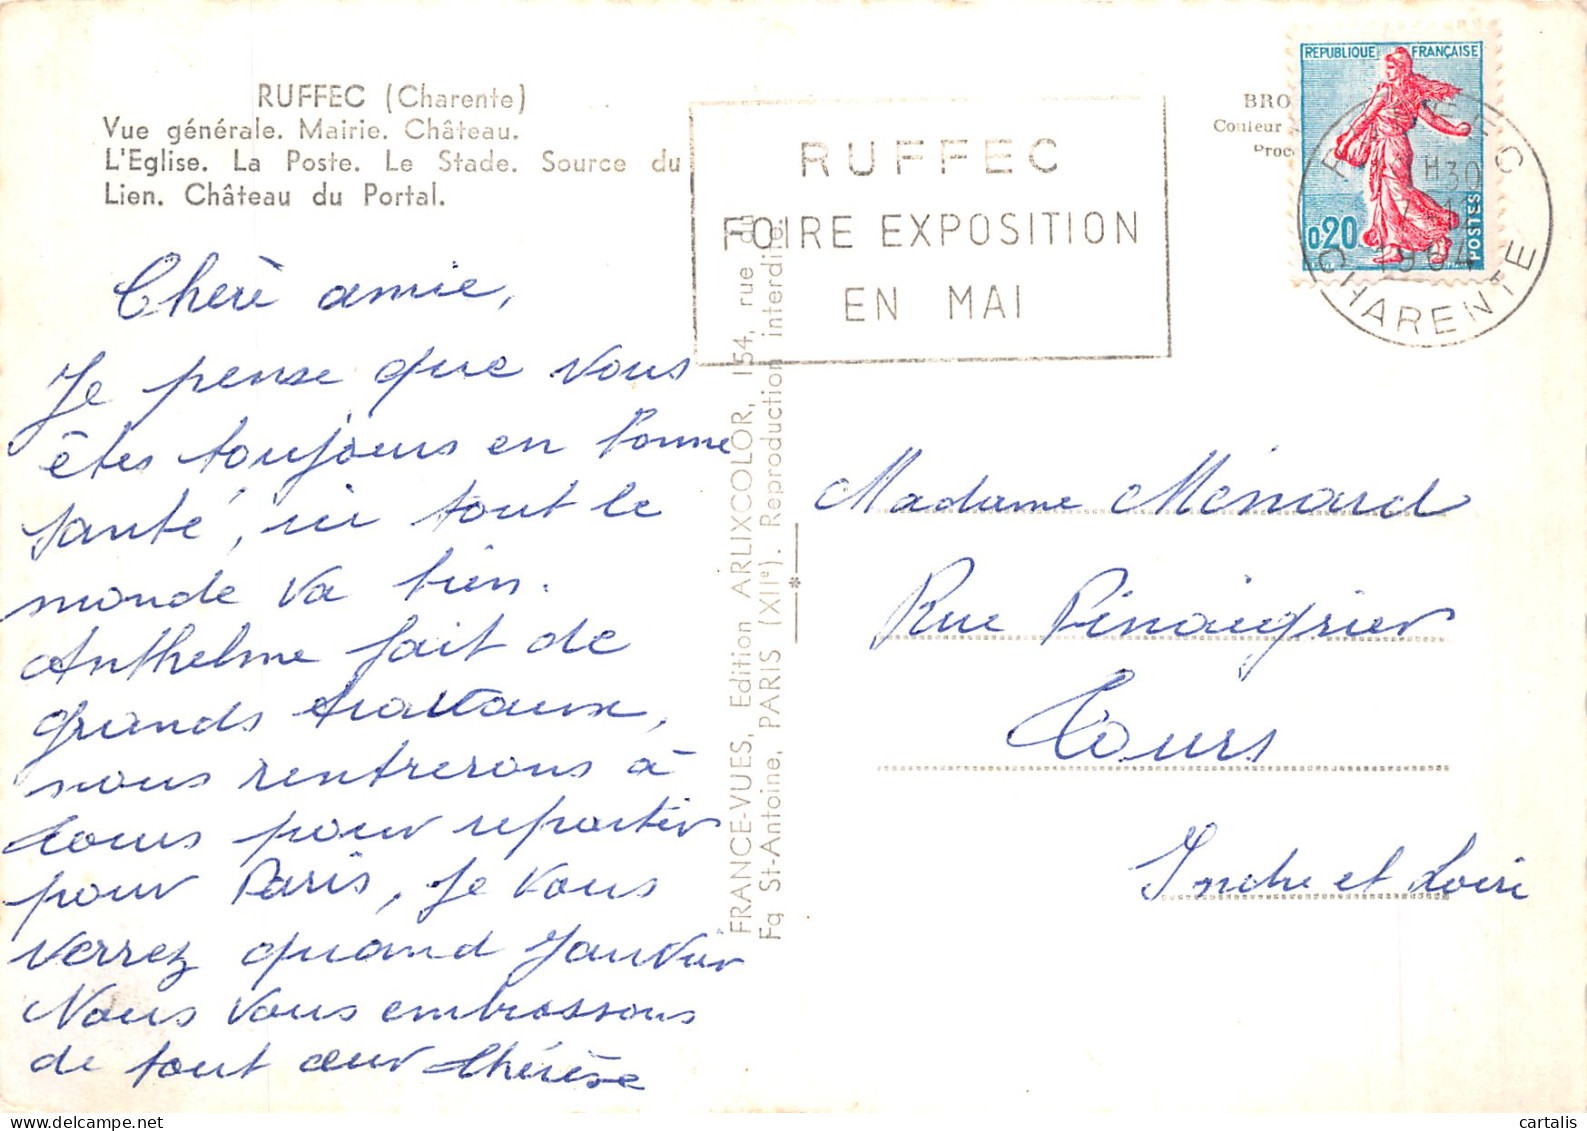 RUFFEC (Charente)
Vue générale. Mairie. Château.
L'Eglise. La Poste. Le Stade. Source du
Lien. Château du Portal.
Chère amie,
Je pense que vous
êtes toujours en bonne
santé, ici tout le
monde va bien.
Anthelme fait de
grands travaux,
nous rentrerons à
Tours pour repartir
pour Paris, Je vous
verrez quand Janvier
Nous vous embrassons
de tout cœur Thérèse
RUFFEC
FOIRE EXPOSITION
EN MAI
FRANCE-VUES, Edition ARLIXCOLOR, 154, rue du
Fg St-Antoine, PARIS (XIIe). Reproduction interdite.
BRO
Couleur
Proc
REPUBLIQUE FRANÇAISE
0,20
POSTES
RUFFEC
H30
7-12
1964
CHARENTE
Madame Ménard
Rue Pinaigrier
Tours
Indre et Loire
cartalis